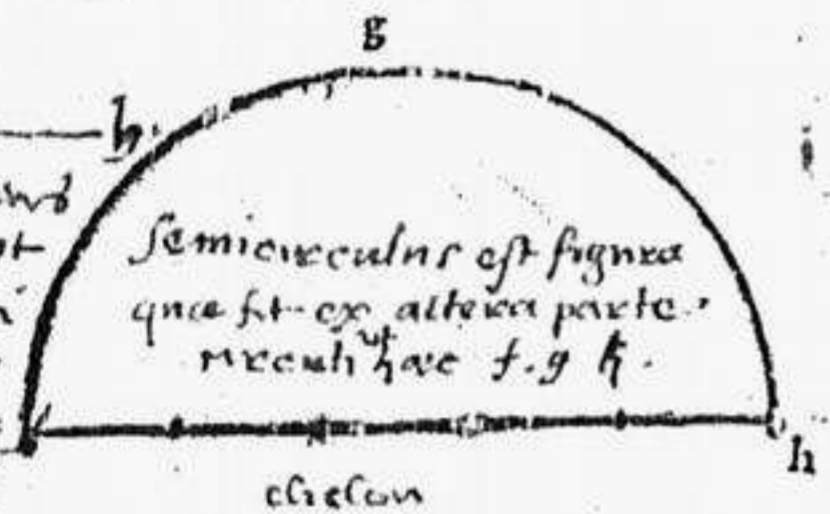 g
h
Semicirculus est figura
quæ fit ex altera parte
circuli ut hæc f. g h.
h